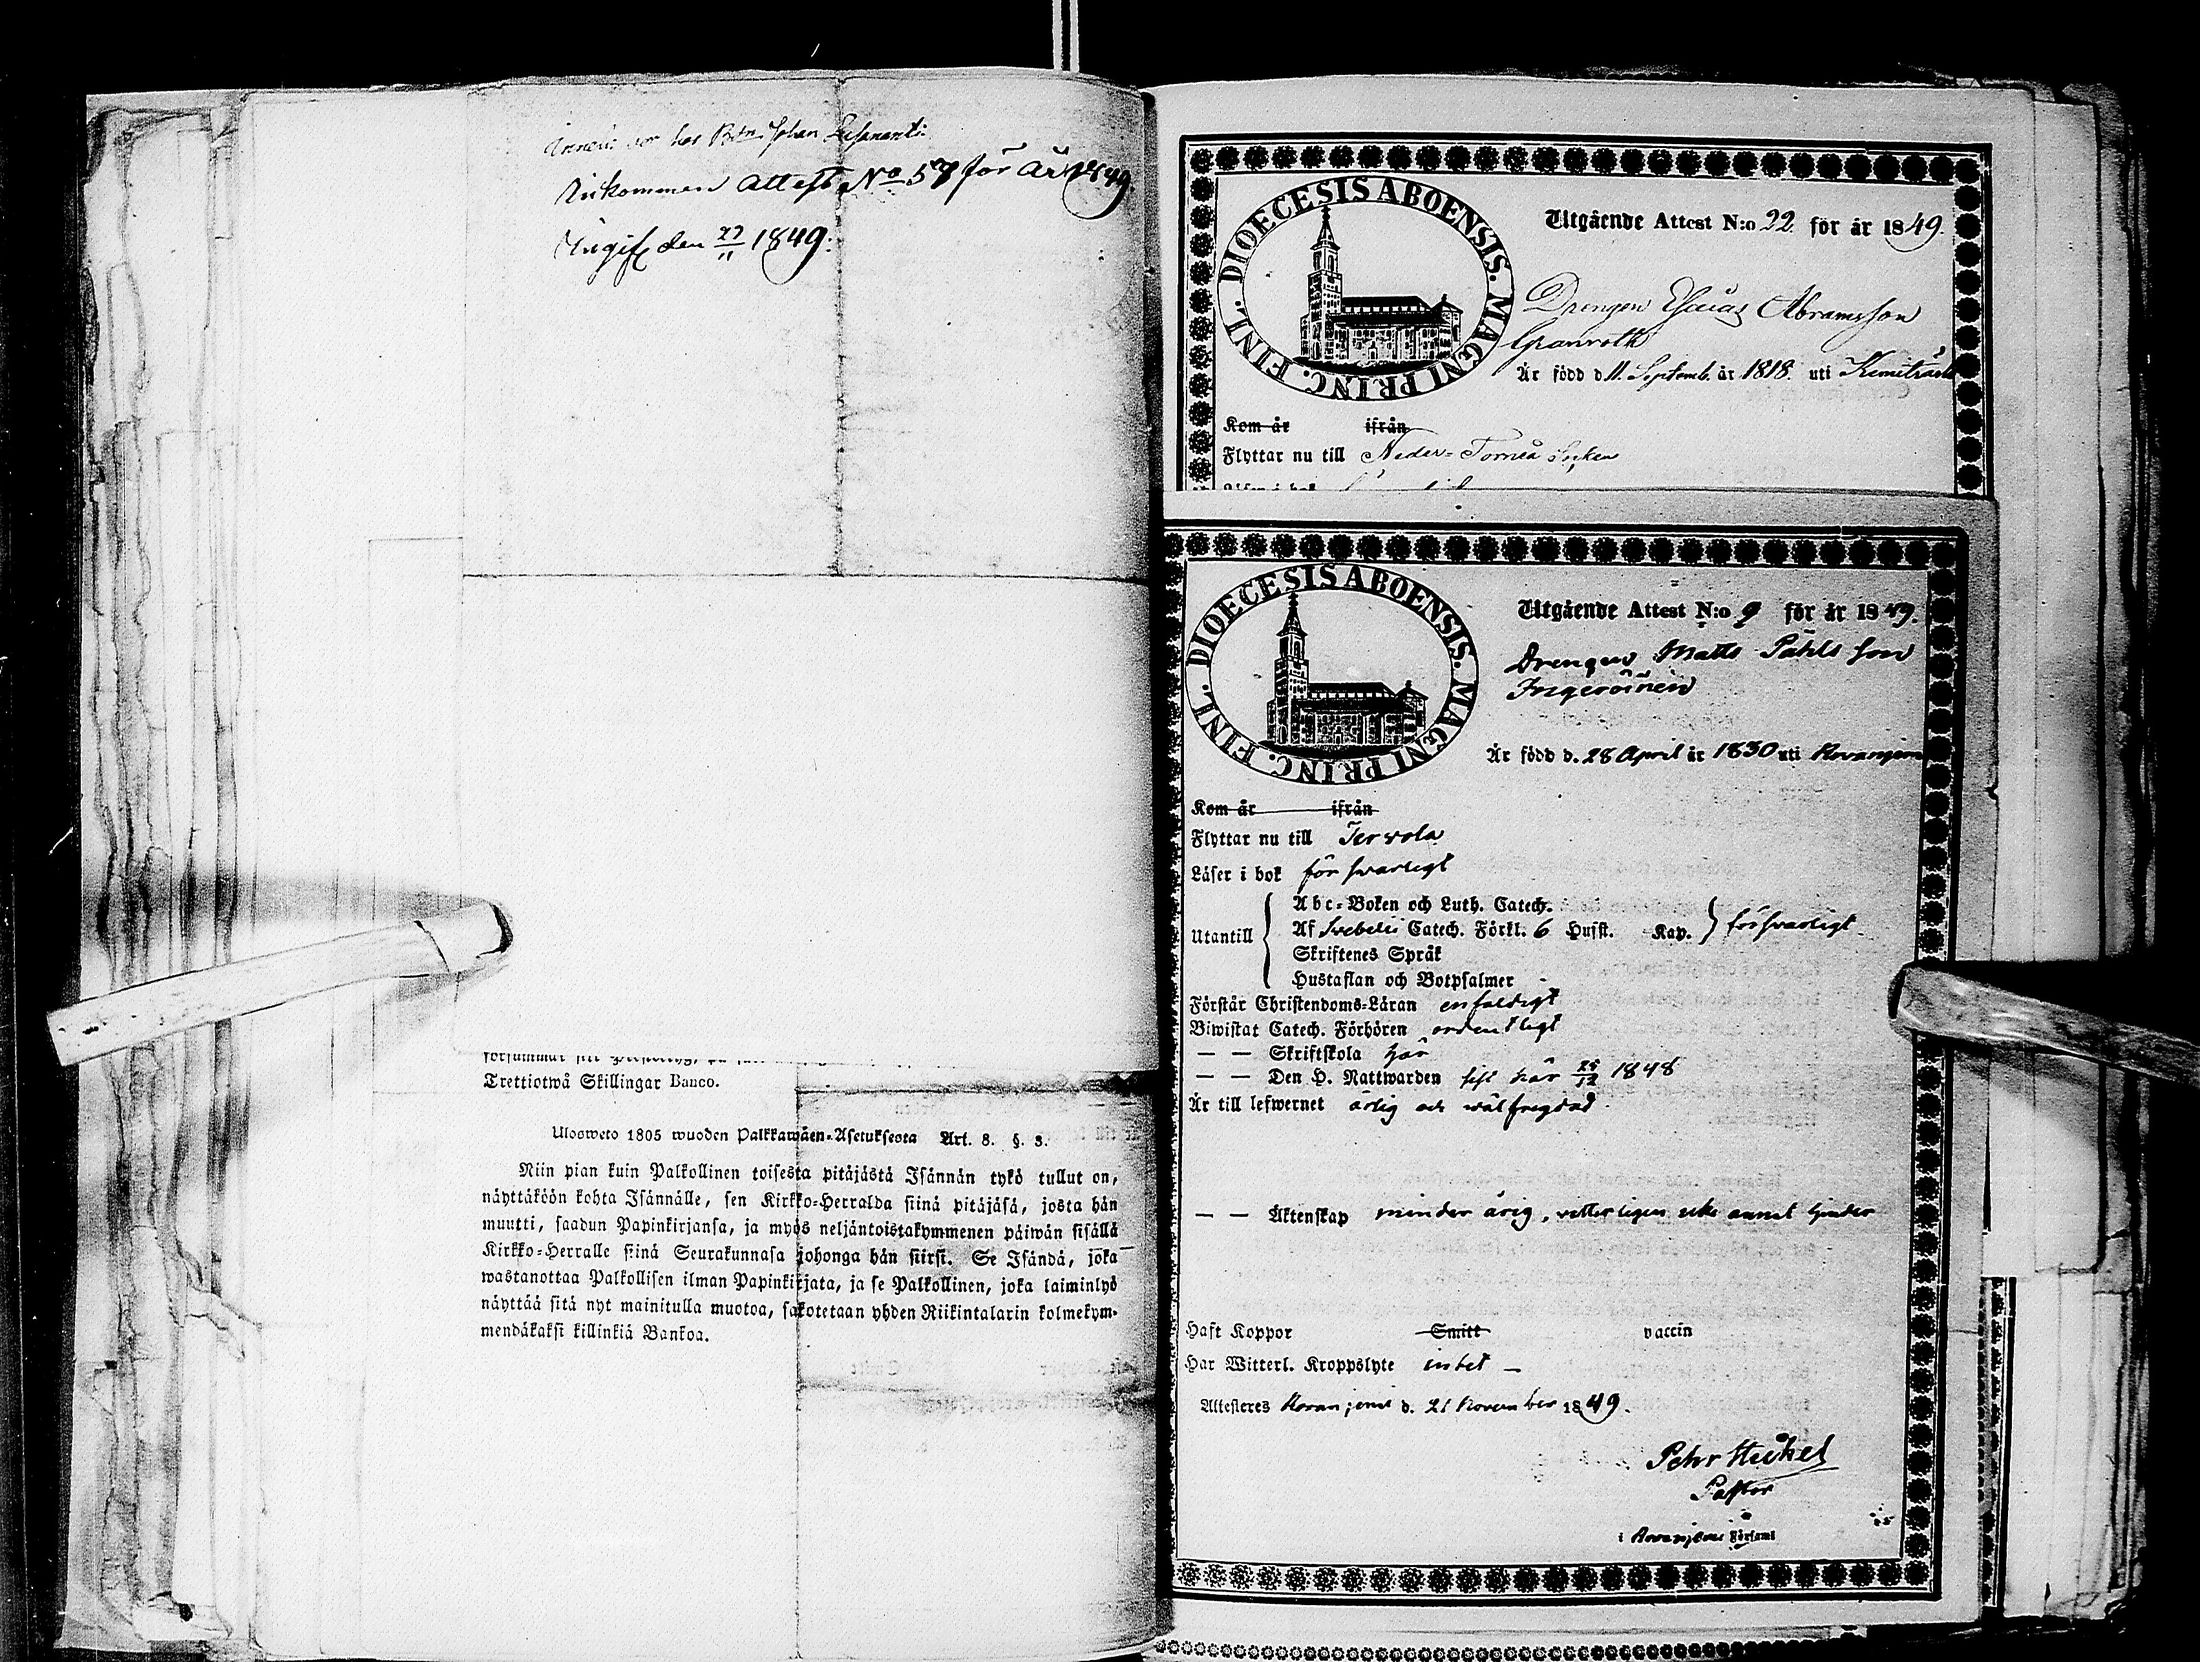 Inkommen attest No 57 för år 1849.
Ingif den 27/11 1849.
Trettiotwå Skillingar Banco.
Ulosweto 1805 wuoden Palkkawäen-Asetuksesta Art. 8. §. 3.
Niin pian kuin Palkollinen toisesta pitäjästä Isännän tykö tullut on,
näyttäköön kohta Isännälle, sen Kirkko-Herralda siinä pitäjäsä, josta hän
muutti, saadun Papinkirjansa, ja myös neljäntoistakymmenen päiwän sisällä
Kirkko-Herralle siinä Seurakunnasa johonga hän siirsi. Se Isändä, joka
wastanottaa Palkollisen ilman Papinkirjata, ja se Palkollinen, joka laiminlyö
näyttää sitä nyt mainitulla muotoa, sakotetaan yhden Riikintalarin kolmekym-
mendäkaksi killinkiä Bankoa.
DIOECESIS ABOENSIS. MAGNI PRINC. FINL.
Utgående Attest N:o 22 för år 1849.
Drengen Esaias Abramsson
Granroth
Är född d. 11. Septemb. år 1818. uti Kemiträsk
Kom år ifrån
Flyttar nu till Neder-Torneå Socken
DIOECESIS ABOENSIS. MAGNI PRINC. FINL.
Utgående Attest N:o 9 för år 1849.
Drengen Matts Påhls son
Ingeröinen
Är född d. 28 April år 1830 uti Rovaniemi
Kom år ifrån
Flyttar nu till Tervola
Läser i bok försvarligt
Utantill
Abc-Boken och Luth. Catech.
Af Svebelii Catech. Förkl. 6 Hufst. Kap. försvarligt
Skriftenes Språk
Hustaflan och Botpsalmer
Förstår Christendoms-Läran enfaldigt
Biwistat Catech. Förhören ordentligt
— — Skriftskola här
— — Den H. Nattwarden sist här 25/12 1848
Är till lefwernet ärlig och välfregdad
— — Äktenskap minder årig, vetterligen icke annat hinder
Haft Koppor Smitt vaccin
Har Witterl. Kroppslyte intet —
Attesteres Rovaniemi d. 21 November 1849.
Pehr Heikel
Pastor
i Rovaniemi Församl